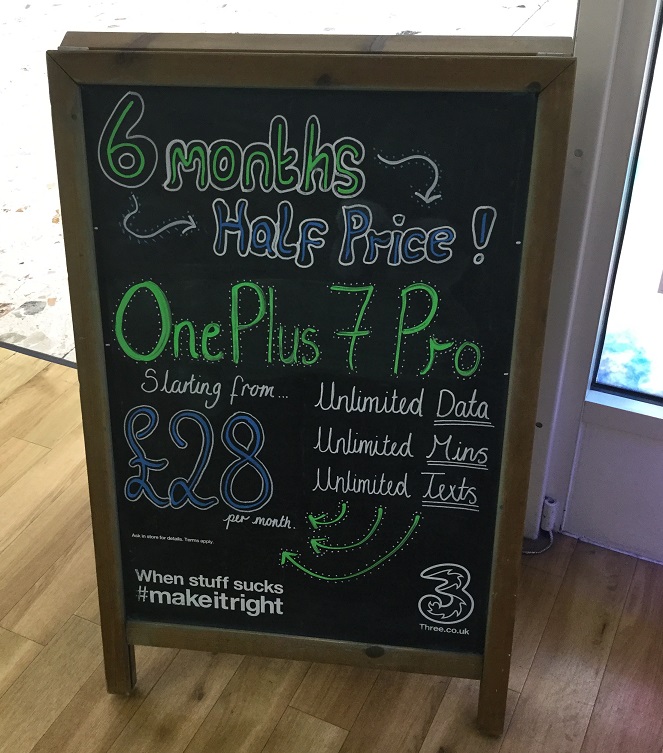 6 months
Half Price!
OnePlus 7 Pro
Starting from...
£28
per month.
Unlimited Data
Unlimited Mins
Unlimited Texts
Ask in store for details. Terms apply.
When stuff sucks
#makeitright
3
Three.co.uk